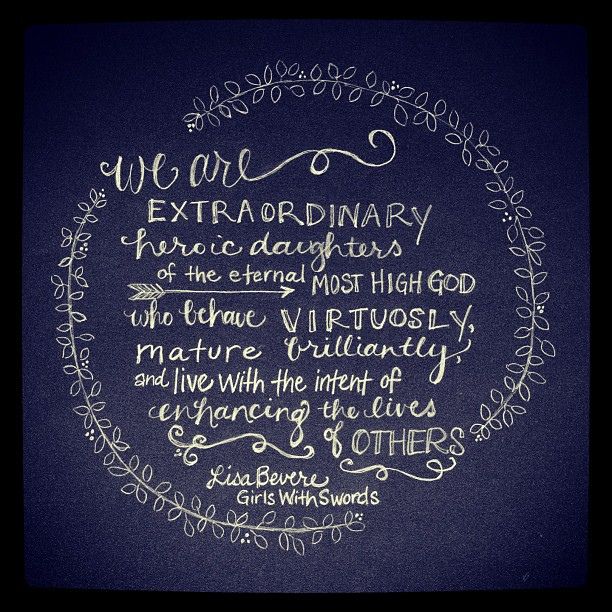 we are
EXTRAORDINARY
heroic daughters
of the eternal MOST HIGH GOD
who behave VIRTUOSLY,
mature brilliantly,
and live with the intent of
enhancing the lives
of OTHERS
Lisa Bevere
Girls With Swords